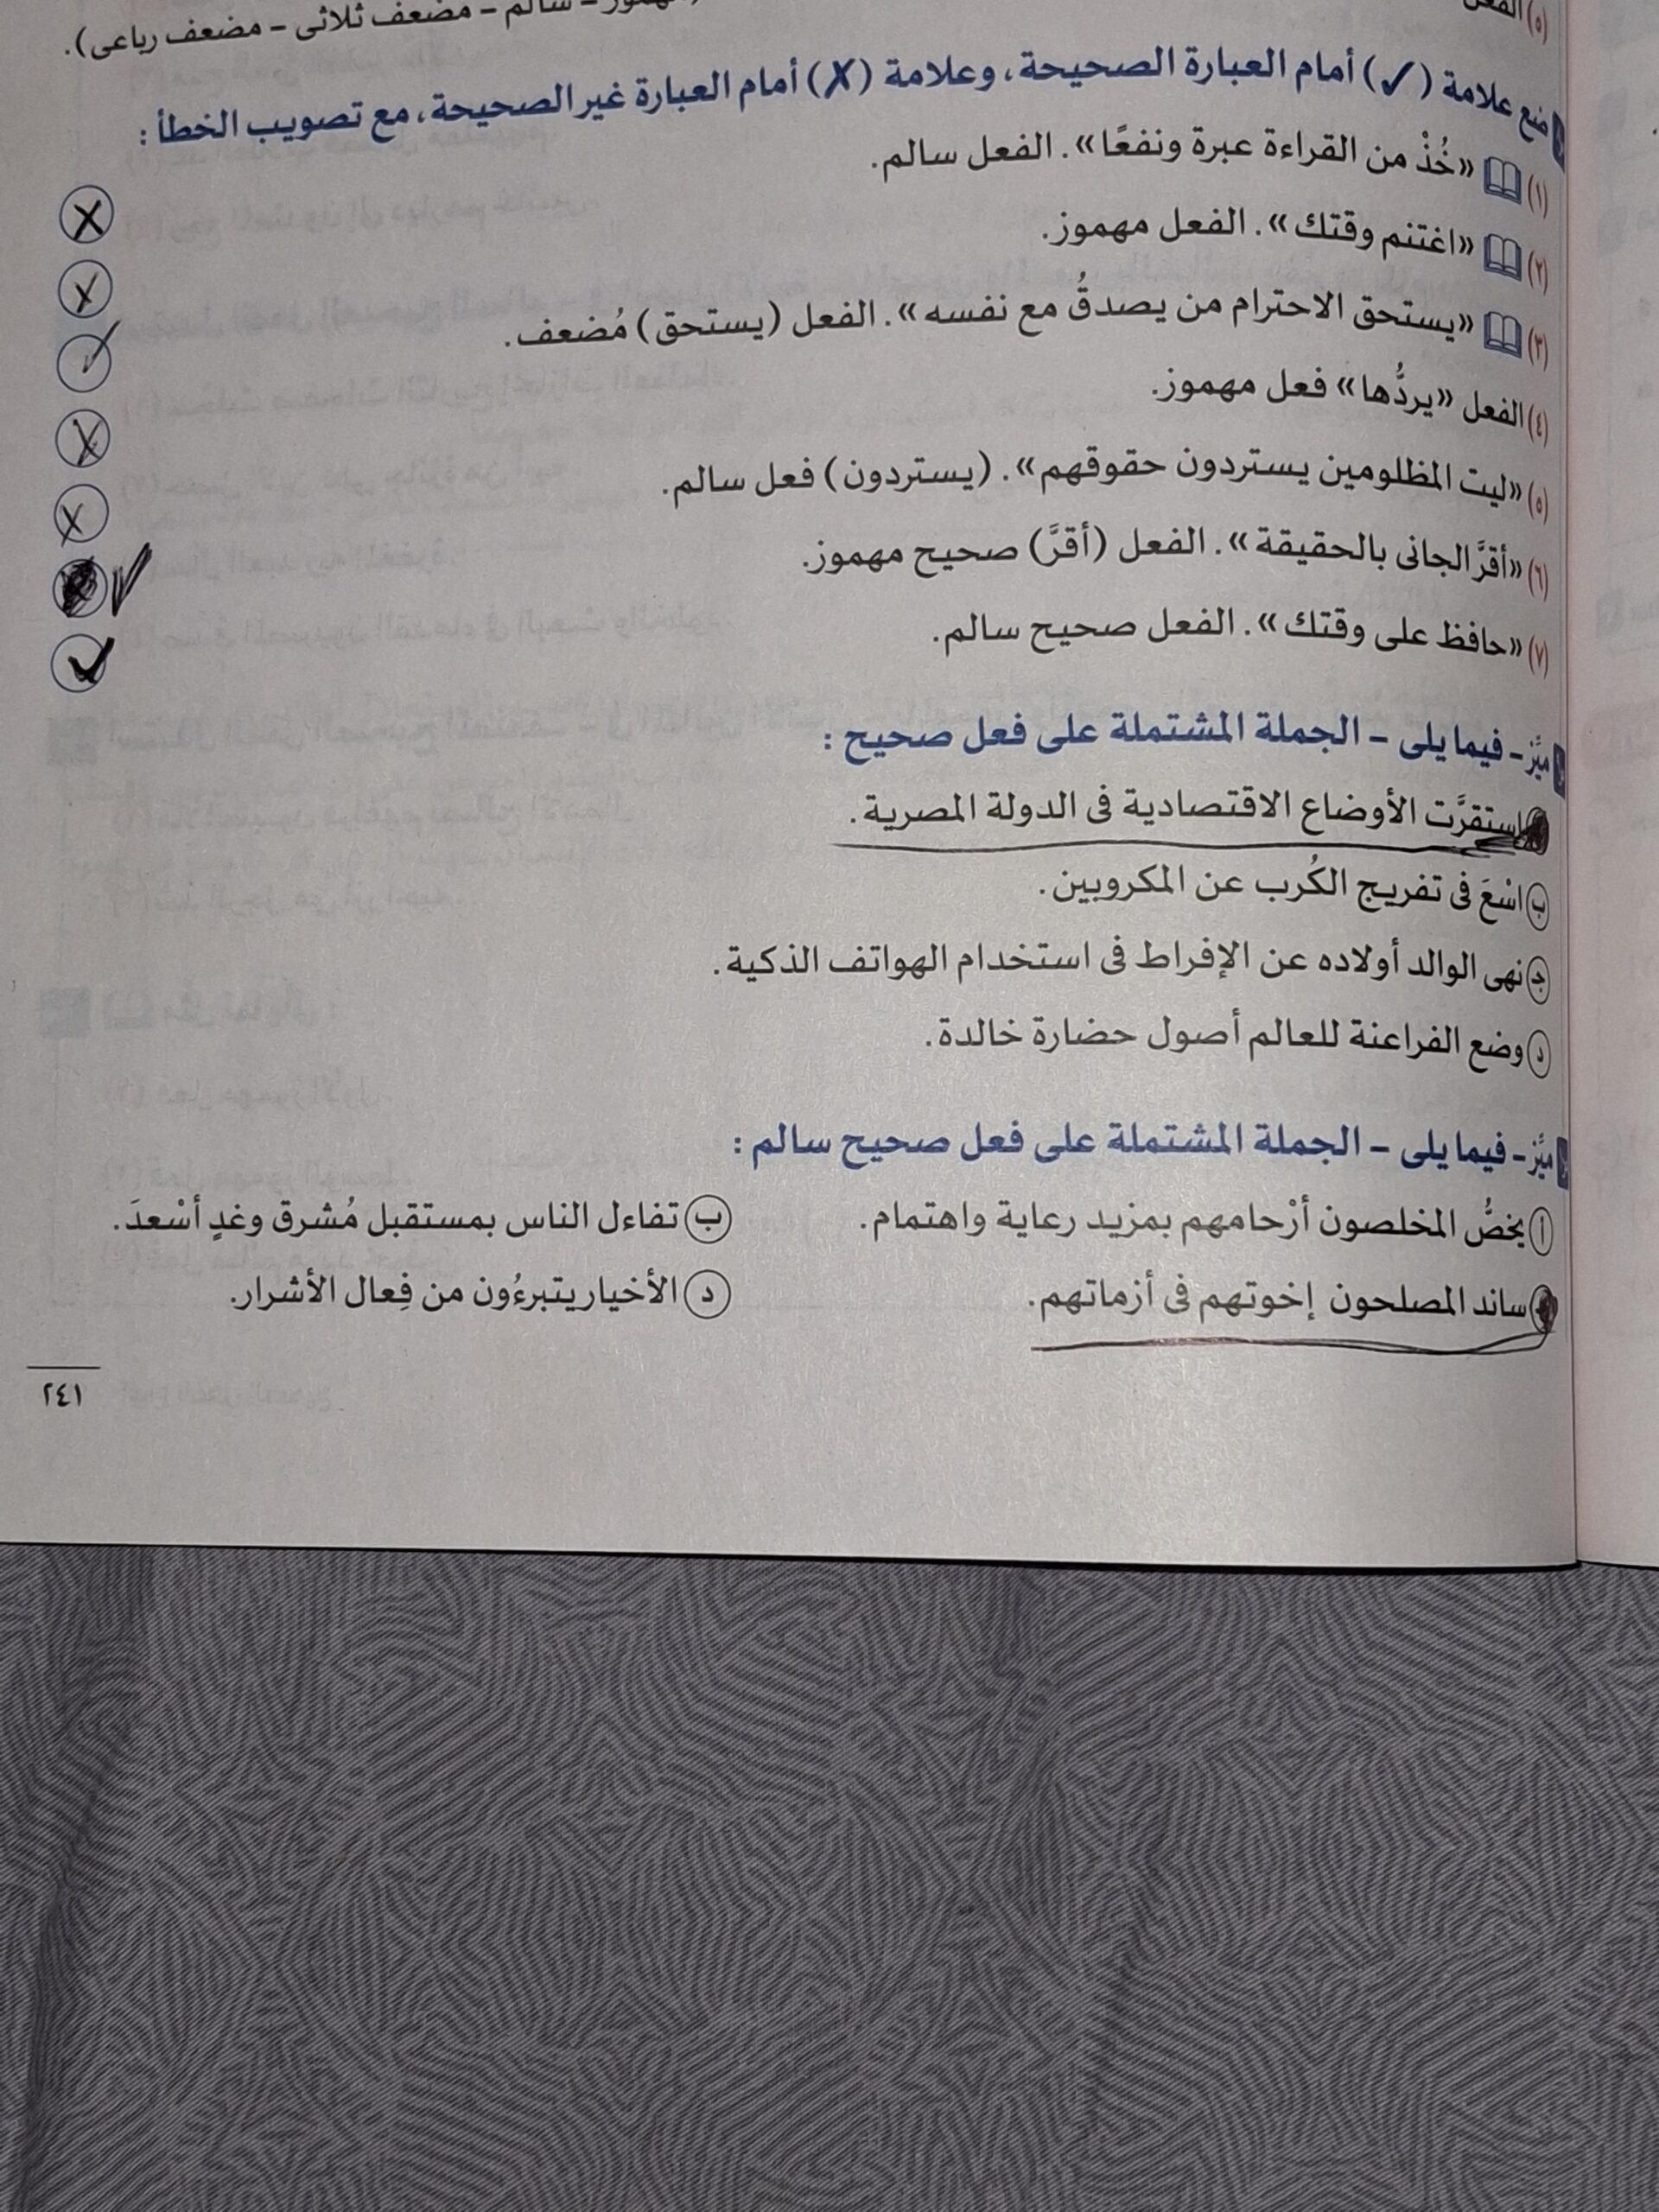 (٥) الفعل
سالم - مضعف ثلاثى - مضعف رباعى).
ضع علامة (✓) أمام العبارة الصحيحة، وعلامة (✗) أمام العبارة غير الصحيحة، مع تصويب الخطأ :
(١) «خُذْ من القراءة عبرة ونفعًا». الفعل سالم. ✗
(٢) «اغتنم وقتك». الفعل مهموز. ✗
(٣) «يستحق الاحترام من يصدقُ مع نفسه». الفعل (يستحق) مُضعف. ✓
(٤) الفعل «يردُّها» فعل مهموز. ✗
(٥) «ليت المظلومين يستردون حقوقهم». (يستردون) فعل سالم. ✗
(٦) «أقرَّ الجانى بالحقيقة». الفعل (أقرَّ) صحيح مهموز. ✓
(٧) «حافظ على وقتك». الفعل صحيح سالم. ✓
ميِّز - فيما يلى - الجملة المشتملة على فعل صحيح :
استقرَّت الأوضاع الاقتصادية فى الدولة المصرية.
ب اسْعَ فى تفريج الكُرب عن المكروبين.
ج نهى الوالد أولاده عن الإفراط فى استخدام الهواتف الذكية.
د وضع الفراعنة للعالم أصول حضارة خالدة.
ميِّز - فيما يلى - الجملة المشتملة على فعل صحيح سالم :
أ يخصُّ المخلصون أرْحامهم بمزيد رعاية واهتمام. ب تفاءل الناس بمستقبل مُشرق وغدٍ أسْعدَ.
ساند المصلحون إخوتهم فى أزماتهم. د الأخيار يتبرءُون من فِعال الأشرار.
٢٤١